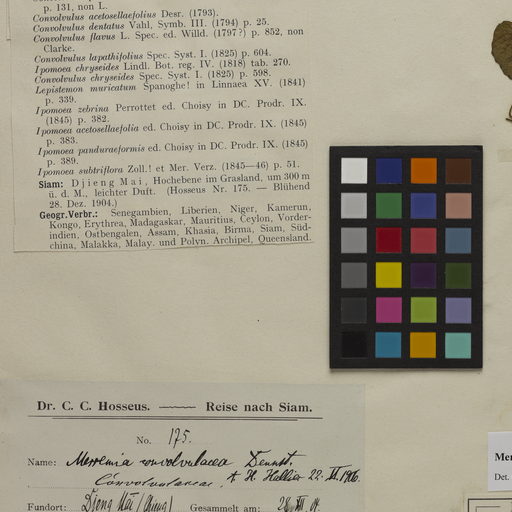 p. 131, non L.
Convolvulus acetosellaefolius Desr. (1793).
Convolvulus dentatus Vahl, Symb. III. (1794) p. 25.
Convolvulus flavus L. Spec. ed. Willd. (1797?) p. 852, non
Clarke.
Convolvulus lapathifolius Spec. Syst. I. (1825) p. 604.
Ipomoea chryseides Lindl. Bot. reg. IV. (1818) tab. 270.
Convolvulus chryseides Spec. Syst. I. (1825) p. 598.
Lepistemon muricatum Spanoghe! in Linnaea XV. (1841)
p. 339.
Ipomoea zebrina Perrottet ed. Choisy in DC. Prodr. IX.
(1845) p. 382.
Ipomoea acetosellaefolia ed. Choisy in DC. Prodr. IX. (1845)
p. 383.
Ipomoea panduraeformis ed. Choisy in DC. Prodr. IX. (1845)
p. 389.
Ipomoea subtriflora Zoll.! et Mer. Verz. (1845—46) p. 51.
Siam: Djieng Mai, Hochebene im Grasland, um 300 m
ü. d. M., leichter Duft. (Hosseus Nr. 175. — Blühend
28. Dez. 1904.)
Geogr.Verbr.: Senegambien, Liberien, Niger, Kamerun,
Kongo, Erythrea, Madagaskar, Mauritius, Ceylon, Vorder-
indien, Ostbengalen, Assam, Khasia, Birma, Siam, Süd-
china, Malakka, Malay. und Polyn. Archipel, Queensland.
Dr. C. C. Hosseus. — Reise nach Siam.
No. 175.
Name: Merremia convolvulacea Dennst.
Convolvulaceae, H. Hallier 22. 1906.
Fundort: Djeng Mai Gesammelt am:
Mer
Det.